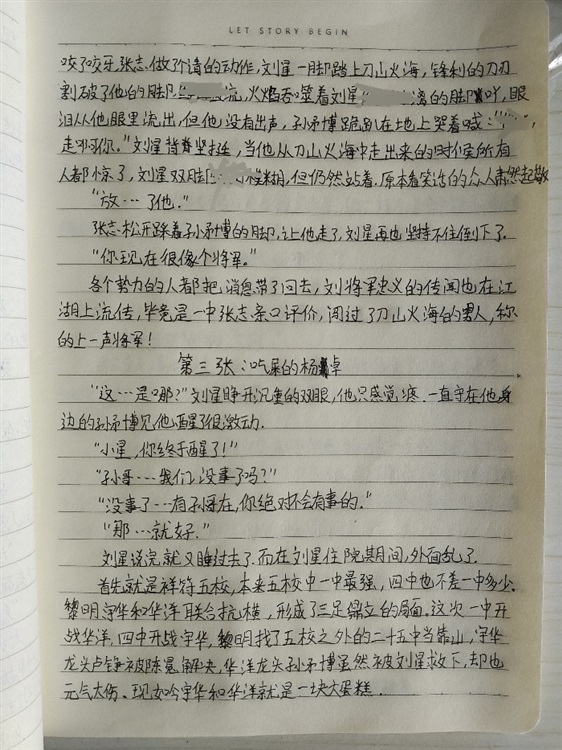 LET STORY BEGIN
咬了咬牙,张志做了个请的动作,刘星一脚踏上刀山火海,锋利的刀刃
割破了他的脚 流,火焰吞噬着刘星 的脚 吖,眼
泪从他眼里流出,但他没有出声,孙矛博跪趴在地上哭着喊:"
走 你。"刘星背脊坚挺,当他从刀山火海中走出来的时侯所有
人都惊了,刘星双脚 模糊,但仍然站着.原本看笑话的众人肃然起敬
"放…了他。"
张志松开踩着孙矛博的脚,让他走了,刘星再也坚持不住倒下了.
"你现在很像个将军。"
各个势力的人都把消息带了回去,刘将军忠义的传闻也在江
湖上流传,毕竟是一中张志亲口评价,闯过了刀山火海的男人,称
的上一声将军!
第三张:吃屎的杨 卓
"这…是哪?"刘星睁开沉重的双眼,他只感觉疼.一直守在他身
边的孙矛博见他醒了很激动.
"小星,你终于醒了!"
"孙哥…我们,没事了吗?"
"没事了…有孙哥在,你绝对不会有事的."
"那…就好."
刘星说完,就又睡过去了.而在刘星住院其期间,外面乱了.
首先就是祥符五校,本来五校中一中最强,四中也不差一中多少.
黎明守华和华洋联合抗横,形成了三足鼎立的局面.这次一中开
战华洋,四中开战守华,黎明找了五校之外的二十五中当靠山,守华
龙头卢铮被陈 解决,华洋龙头孙矛博虽然被刘星救下,却也
元气大伤、现如今守华和华洋就是一块大蛋糕.